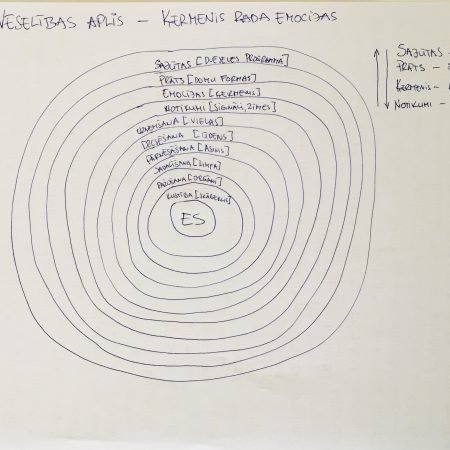 VESELĪBAS APLIS – ĶERMENIS RADA EMOCIJAS
SAJŪTAS [DVĒSELES PROGRAMMA]
PRĀTS [DOMU FORMAS]
EMOCIJAS [ĶERMENIS]
NOTIKUMI [SIGNĀLI, ZĪMES]
UZŅEMŠANA [VIELAS]
[ŪDENS]
PĀRNĒSĀŠANA [ASINIS]
SADALĪŠANA [LIMFA]
[ORGĀNI]
KUSTĪBA [SKĀBEKLIS]
ES
SAJŪTAS –
PRĀTS –
ĶERMENIS –
NOTIKUMI –